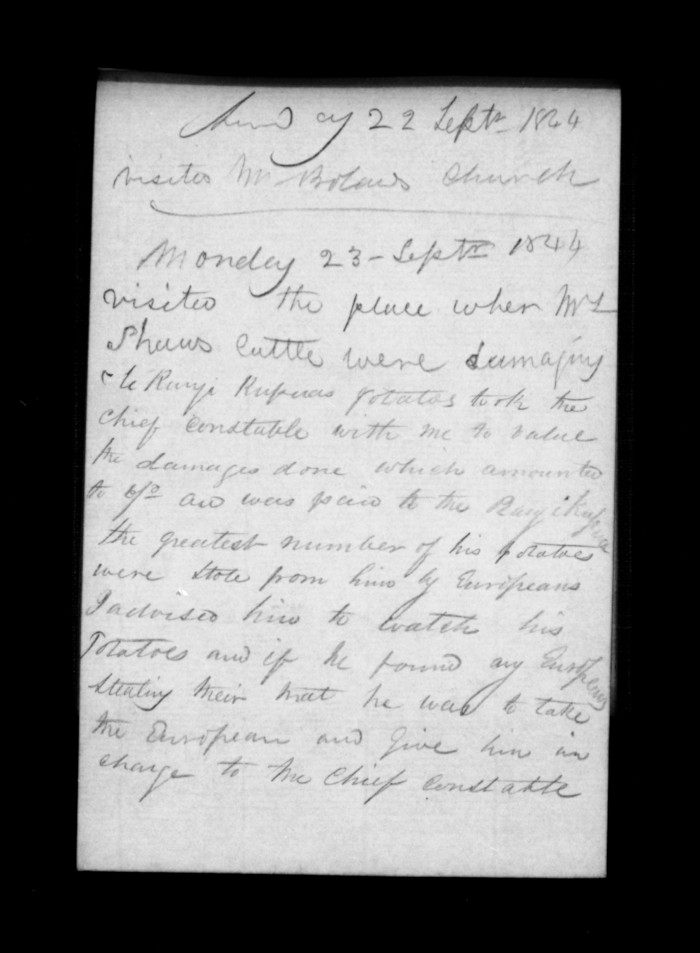 Sunday 22 Septr 1844
visited Mr Bolands Church
Monday 23 - Septr 1844
visited the place wher Mr
Shaws Cattle were damaging
Te Rangi Kupuas potatos took the
Chief Constable with me to value
the damages done which amounted
to and was paid to the Rangi Kupua
the greatest number of his potatoes
were stole from him by Europeans
I advised him to watch his
Potatoes and if he found any Europeans
Stealing their that he was to take
the European and Give him in
charge to the Chief Constable